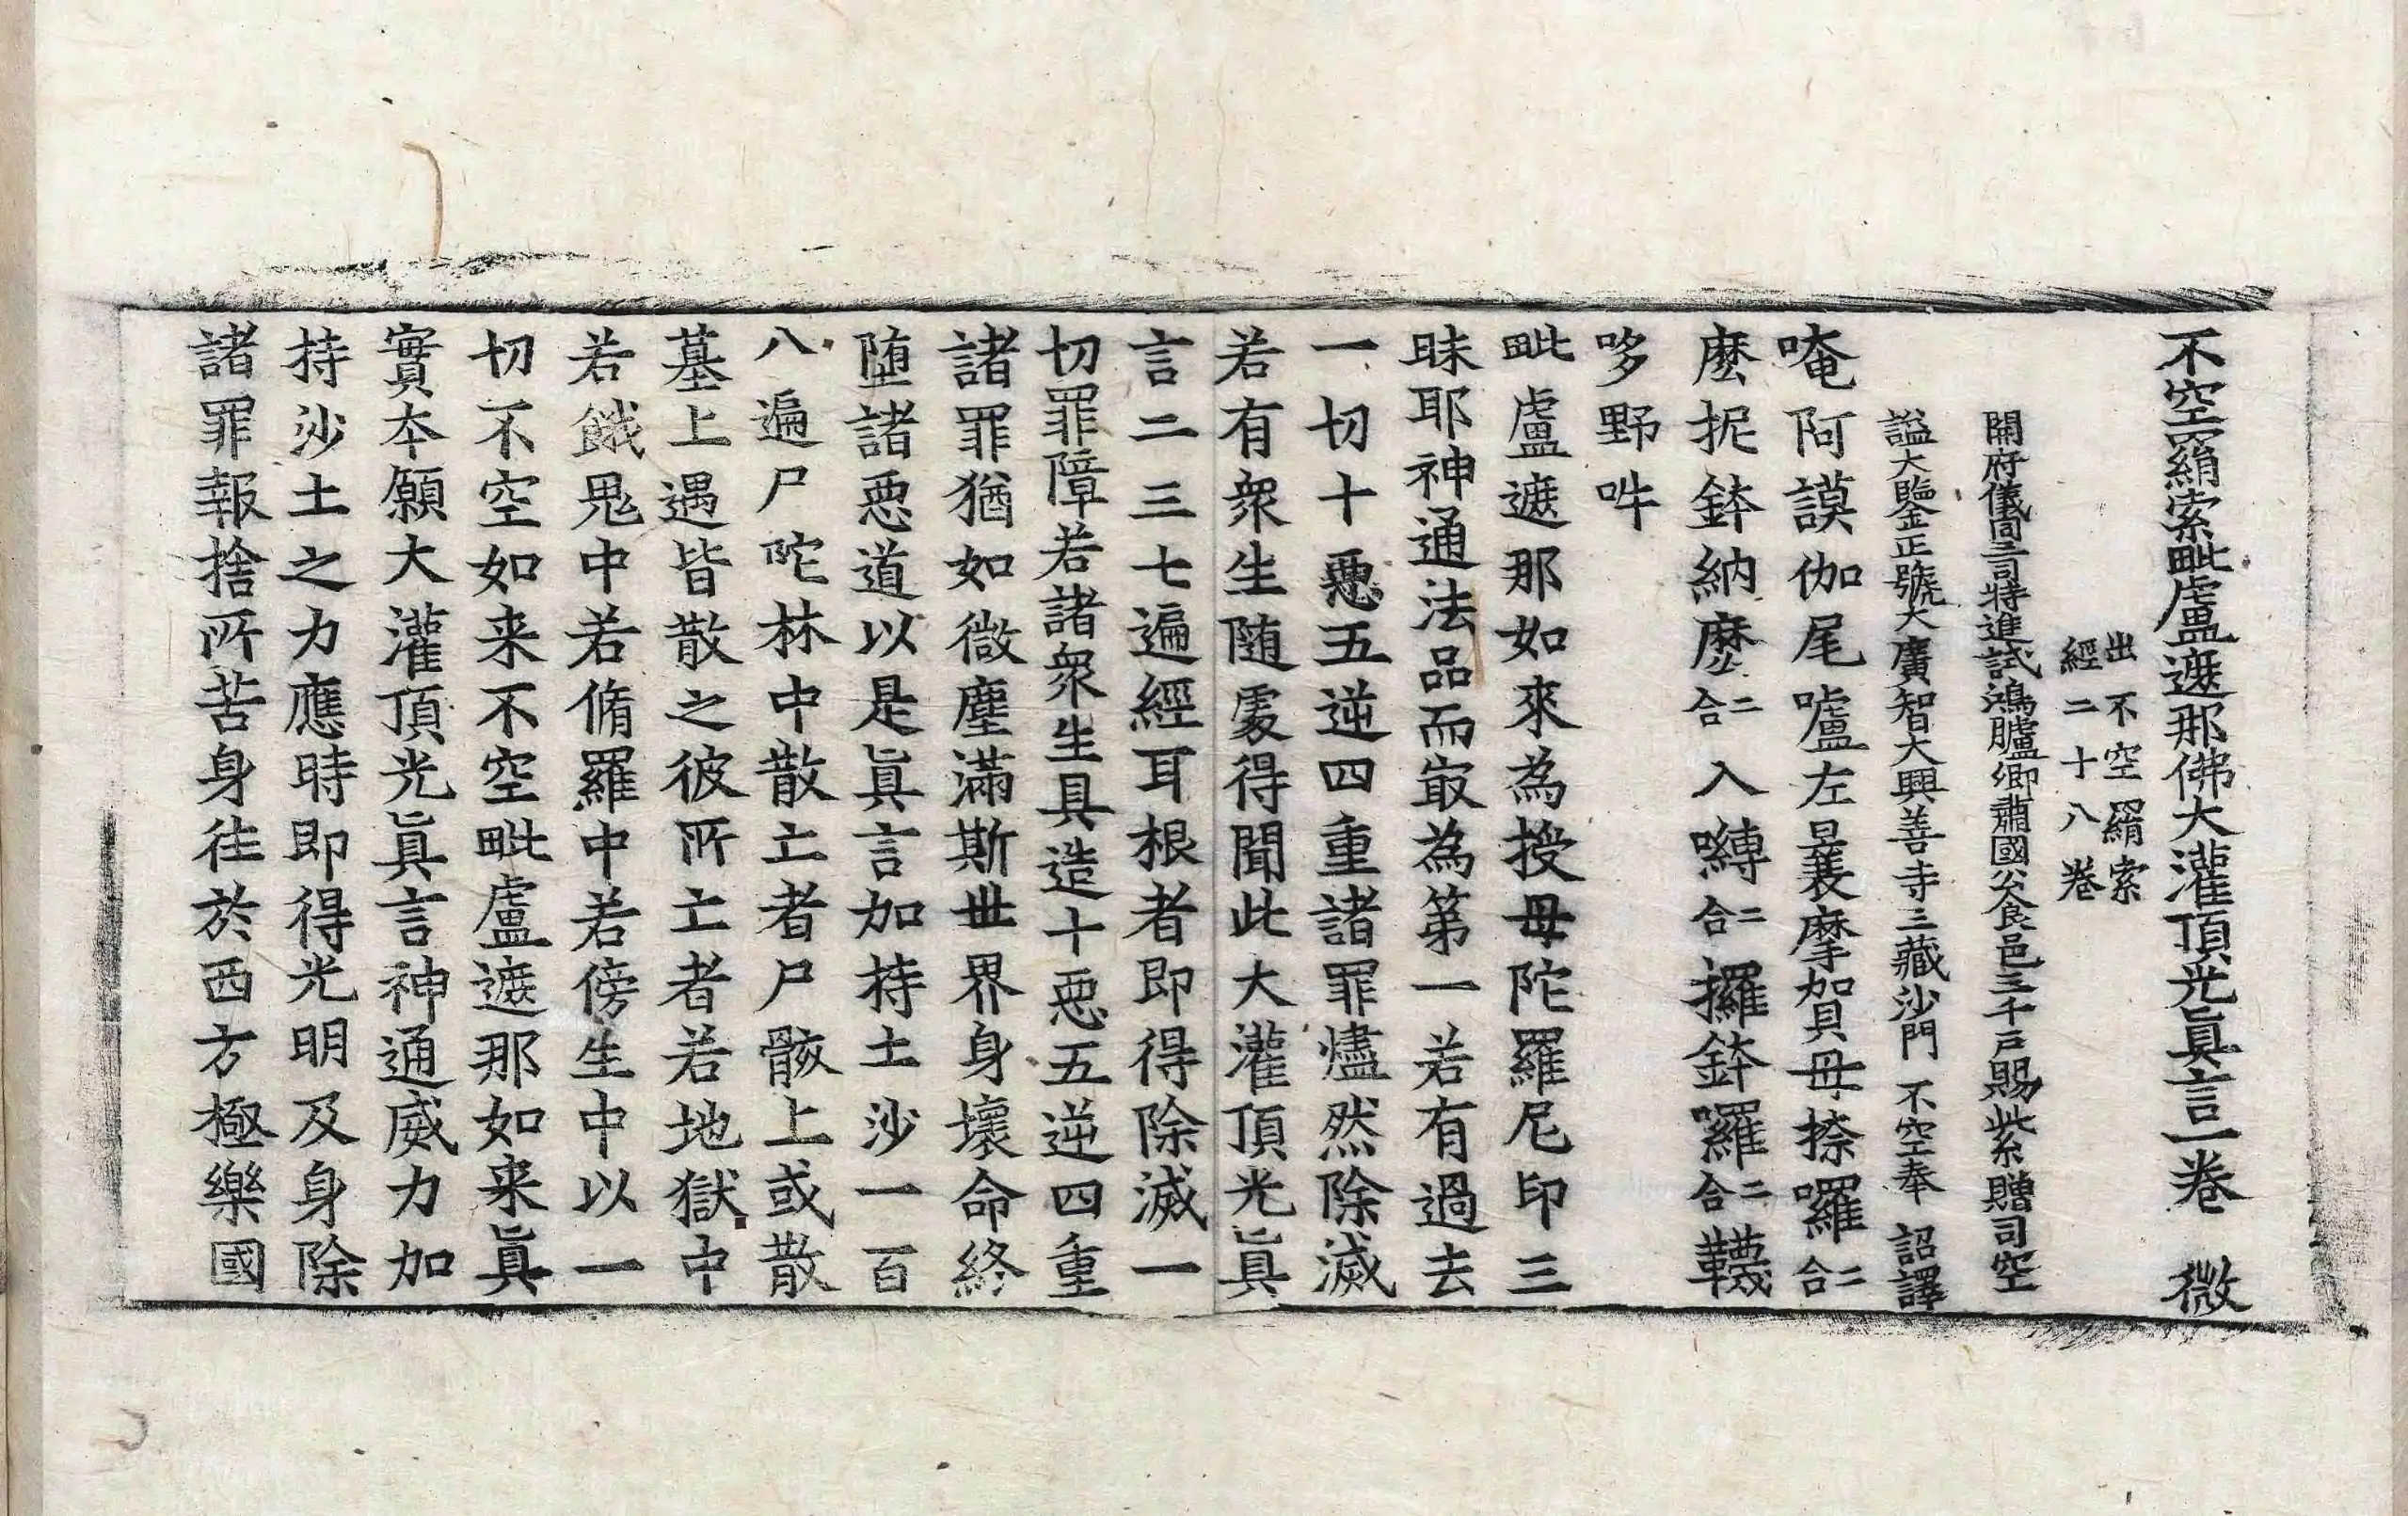 不空羂索毗盧遮那佛大灌頂光眞言一卷　微
出不空羂索
經二十八卷
開府儀同三司特進試鴻臚卿肅國公食邑三千戶賜紫贈司空
謚大鑒正號大廣智大興善寺三藏沙門　不空奉　詔譯
唵阿謨伽尾嚧左曩摩賀母捺囉二合
麽抳鉢納麽二合入嚩二合攞鉢囉二合韈
哆野吽
毗盧遮那如來為授母陀羅尼印三
昧耶神通法品而㝡為第一若有過去
一切十惡五逆四重諸罪燼然除滅
若有衆生随處得聞此大灌頂光眞
言二三七遍經耳根者即得除滅一
切罪障若諸衆生具造十惡五逆四重
諸罪猶如微塵滿斯世界身壞命終
堕諸惡道以是眞言加持土沙一百
八遍尸陀林中散亡者尸骸上或散
墓上遇皆散之彼所亡者若地獄中
若餓鬼中若脩羅中若傍生中以一
切不空如来不空毗盧遮那如来眞
實本願大灌頂光眞言神通威力加
持沙土之力應時即得光明及身除
諸罪報捨所苦身往於西方極樂國